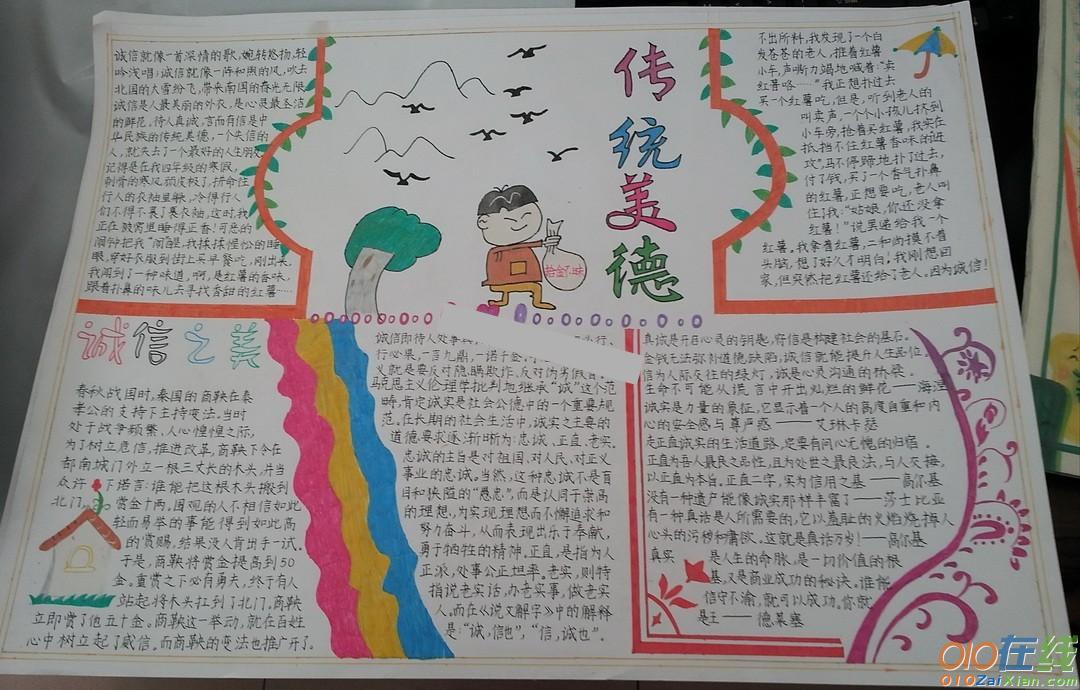 诚信就像一首深情的歌,婉转悠扬,轻
吟浅唱;诚信就像一阵和煦的风,吹去
北国的大雪纷飞,带来南国的春光无限
诚信是人最美丽的外衣,是心灵最圣洁
的鲜花。待人真诚,言而有信是中
华民族的传统美德,一个失信的
人,就失去了一个最好的人生朋友
记得是在我四年级的寒假,
刺骨的寒风顽皮极了,拼命往
行人的衣袖里躲,冷得行人
们不得不裹了裹衣袖,这时,我
正在被窝里睡得正香!可恶的
闹钟把我"闹"醒,我揉揉惺忪的睡
眼,穿好衣服到街上买早餐吃,刚出来,
我闻到了一种味道,啊,是红薯的香味,
跟着扑鼻的味儿去寻找香甜的红薯……
传统美德
拾金不昧
不出所料,我发现了一个白
发苍苍的老人,推着红薯
小车,声嘶力竭地喊着:"卖
红薯咯……"我正想扑过去
买一个红薯吃,但是,听到老人的
叫卖声,一个个小孩儿挤到
小车旁,抢着买红薯,我实在
抵挡不住红薯香味的进
攻",马不停蹄地扑了过去,
付了钱,买了一个香气扑鼻
的红薯,正想要吃,老人叫
住了我:"姑娘,你还没拿
红薯!"说罢递给我一个
红薯。我拿着红薯,二和尚摸不着
头脑,想了好久才明白!我刚想回
家,但突然把红薯还给了老人,因为诚信!
诚信之美
春秋战国时,秦国的商鞅在秦
孝公的支持下主持变法。当时
处于战争频繁、人心惶惶之际,
为了树立危信,推进改革,商鞅下令在
都南城门外立一根三丈长的木头,并当
众许下诺言:谁能把这根木头搬到
北门,赏金十两,围观的人不相信如此
轻而易举的事能得到如此高
的赏赐,结果没人肯出手一试。
于是,商鞅将赏金提高到50
金。重赏之下必有勇夫,终于有人
站起将木头扛到了北门。商鞅
立即赏了他五十金。商鞅这一举动,就在百姓
心中树立起了威信。而商鞅的变法也推广开了。
诚信即待人处事真
行必果,一言九鼎,一诺千金。
义就是要反对隐瞒欺诈、反对伪劣假冒。
马克思主义伦理学批判地继承"诚"这个范
畴,肯定诚实是社会公德中的一个重要规
范。在长期的社会生活中,诚实之主要的
道德要求逐渐晰为:忠诚、正直、老实。
忠诚的主旨是对祖国、对人民、对正义
事业的忠诚。当然,这种忠诚不是盲
目和狭隘的"愚忠",而是认同于崇高
的理想,为实现理想而不懈追求和
努力奋斗,从而表现出乐于奉献,
勇于牺牲的精神。正直,是指为人
正派,处事公正坦率。老实,则特
指说老实话,办老实事,做老实
人。而在《说文解字》中的解释
是:"诚,信也","信,诚也"。
真诚是开启心灵的钥匙,将信是构建社会的基石。
金钱无法弥补道德缺陷,诚信就能提升人生品位。
信为人际交往的绿灯,诚是心灵沟通的桥梁。
生命不可能从谎言中开出灿烂的鲜花——海涅
诚实是力量的象征,它显示着一个人的高度自重和内
心的安全感与尊严感——艾琳·卡瑟
走正直诚实的生活道路,定要有问心无愧的归宿。
正直为吾人最良之品性,且为处世之最良法,与人交接,
以正直为本旨。正直二字,实为信用之基——高尔基
没有一种遗产能像诚实那样丰富了——莎士比亚
有一种真话是人所需要的,它以羞耻的火焰烧掉人
心头的污秽和庸欲。这就是真话万岁!——高尔基
真实是人生的命脉,是一切价值的根
基,又是商业成功的秘诀。谁能
信守不渝,就可以成功。你就
是王——德莱塞
010在线
010ZaiXian.com